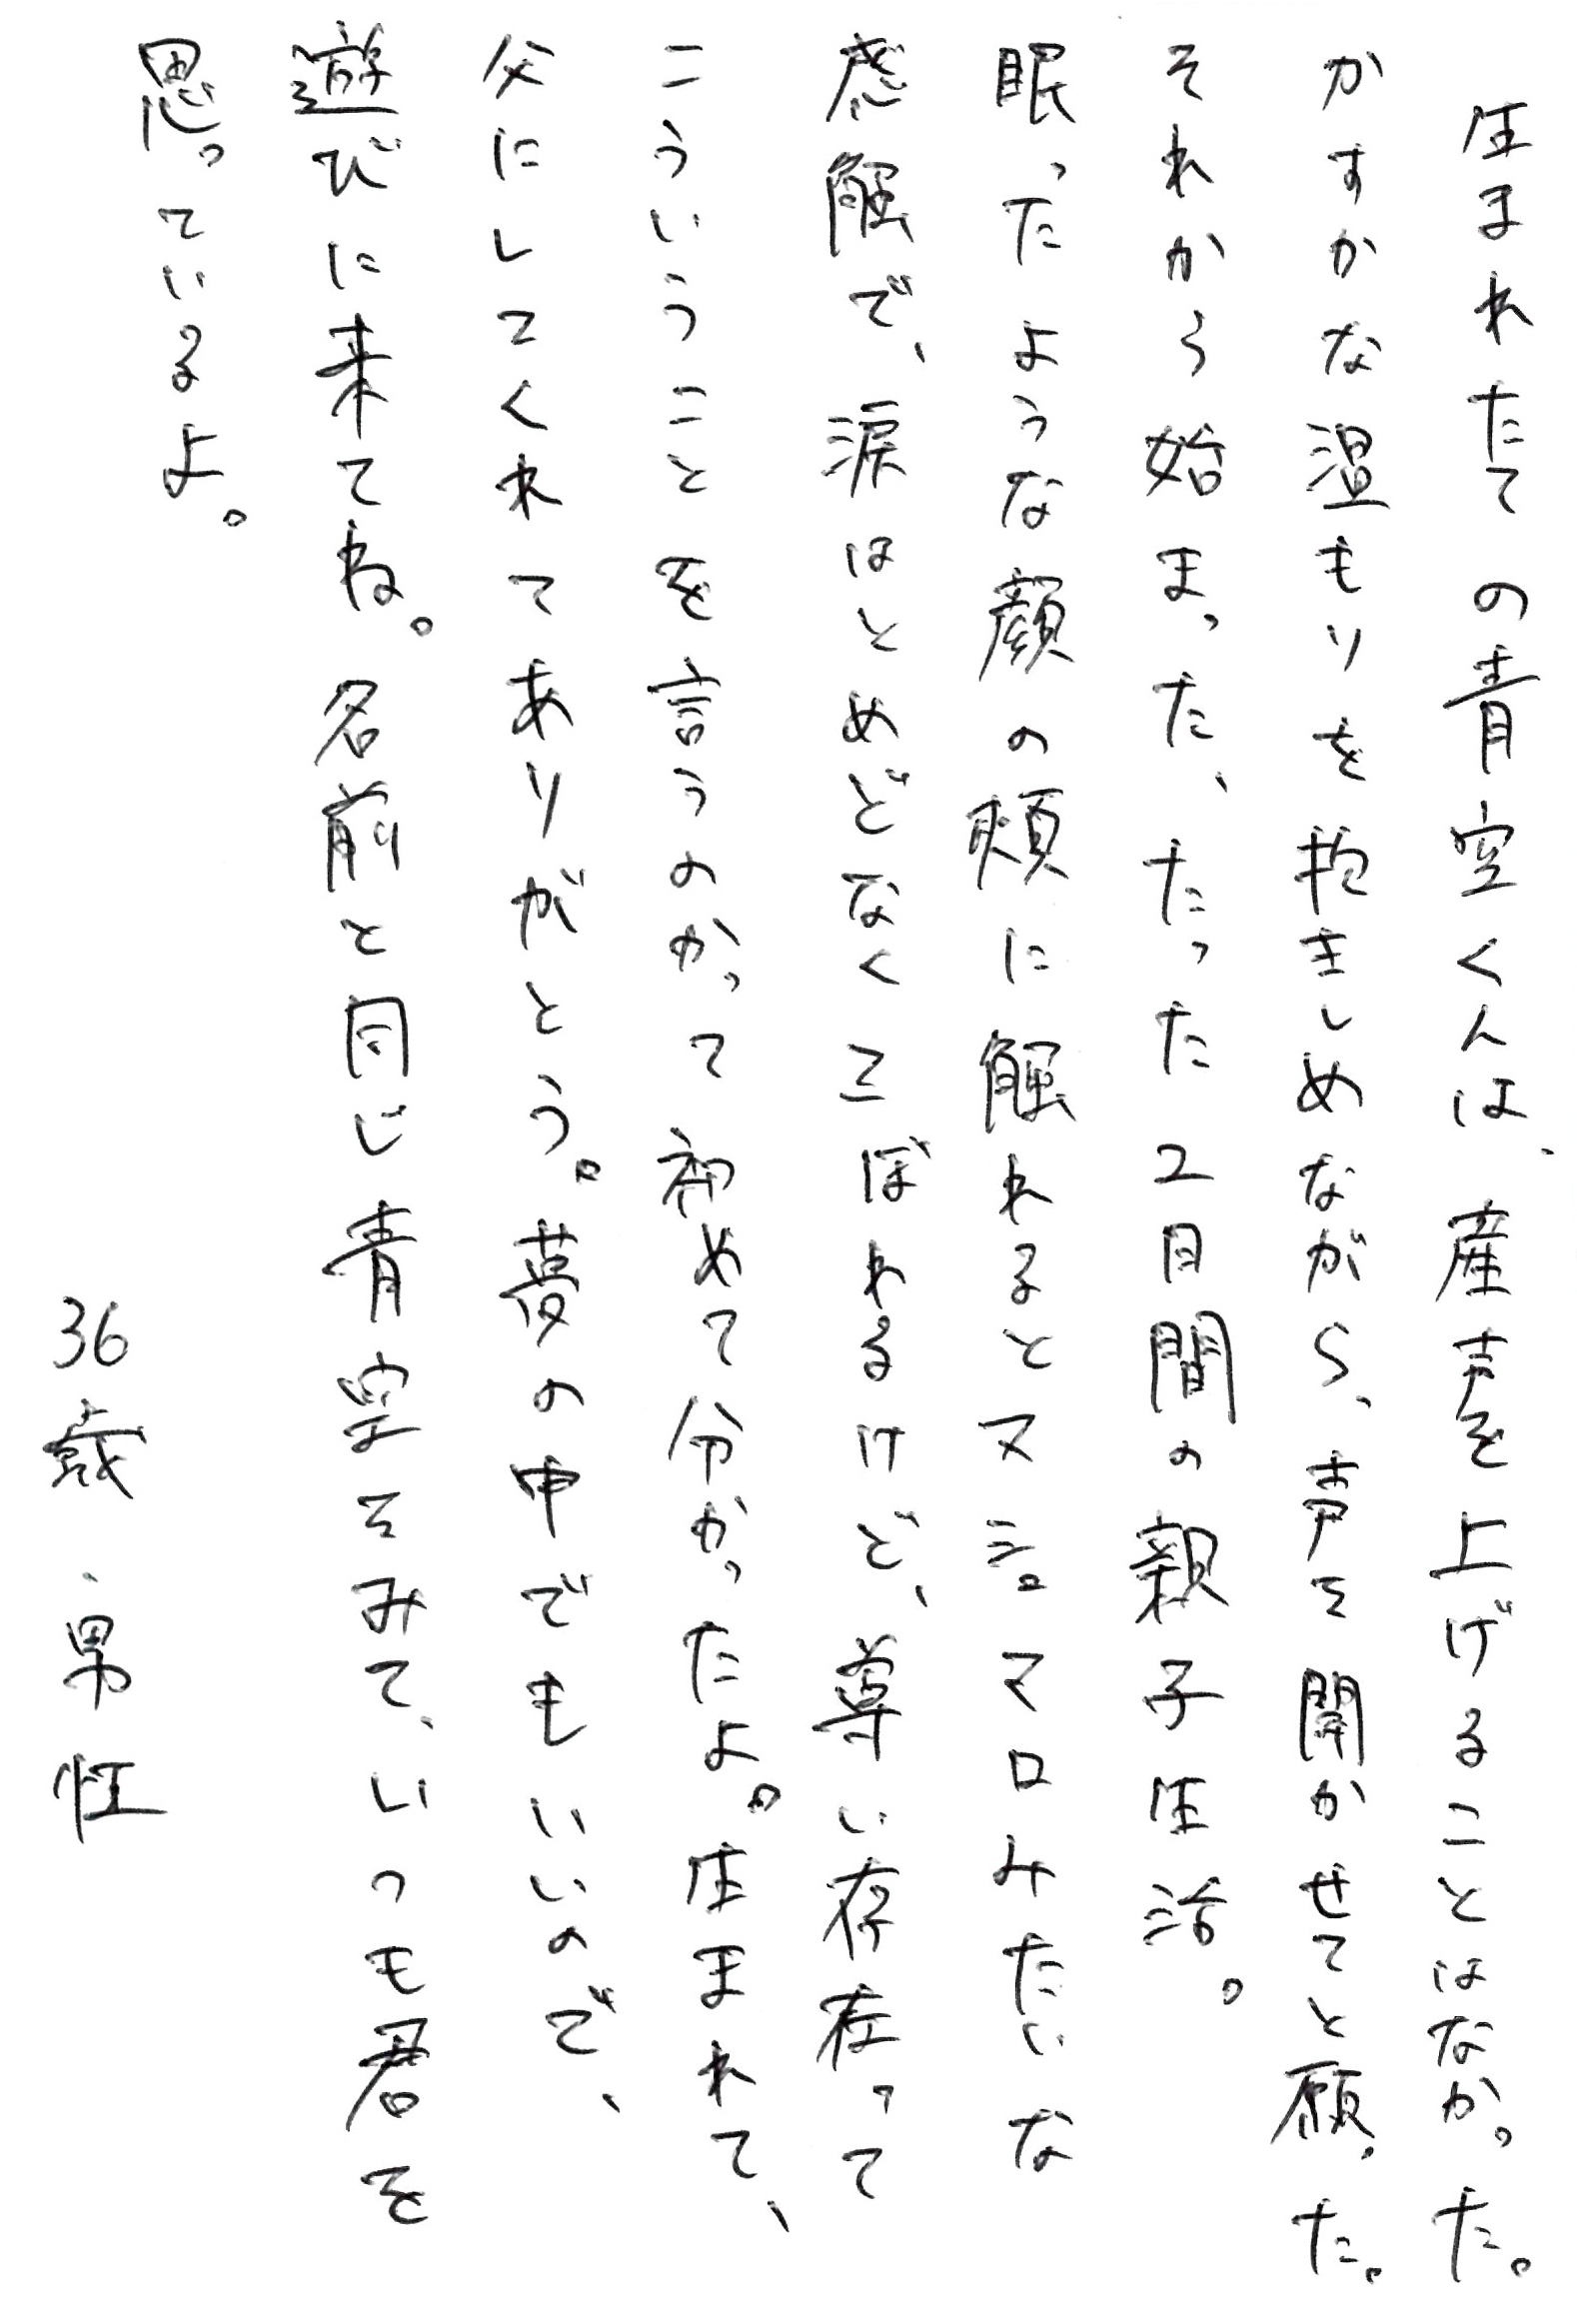 生まれたての青空くんは、産声を上げることはなかった。
かすかな温もりを抱きしめながら、声を聞かせてと願った。
それから始まった、たった2日間の親子生活。
眠ったような顔の頬に触れるとマシュマロみたいな
感触で、涙はとめどなくこぼれるけど、尊い存在って
こういうことを言うのかって初めて分かったよ。生まれて、
父にしてくれてありがとう。夢の中でもいいので、
遊びに来てね。名前と同じ青空をみて、いつも君を
思っているよ。
36歳 男性